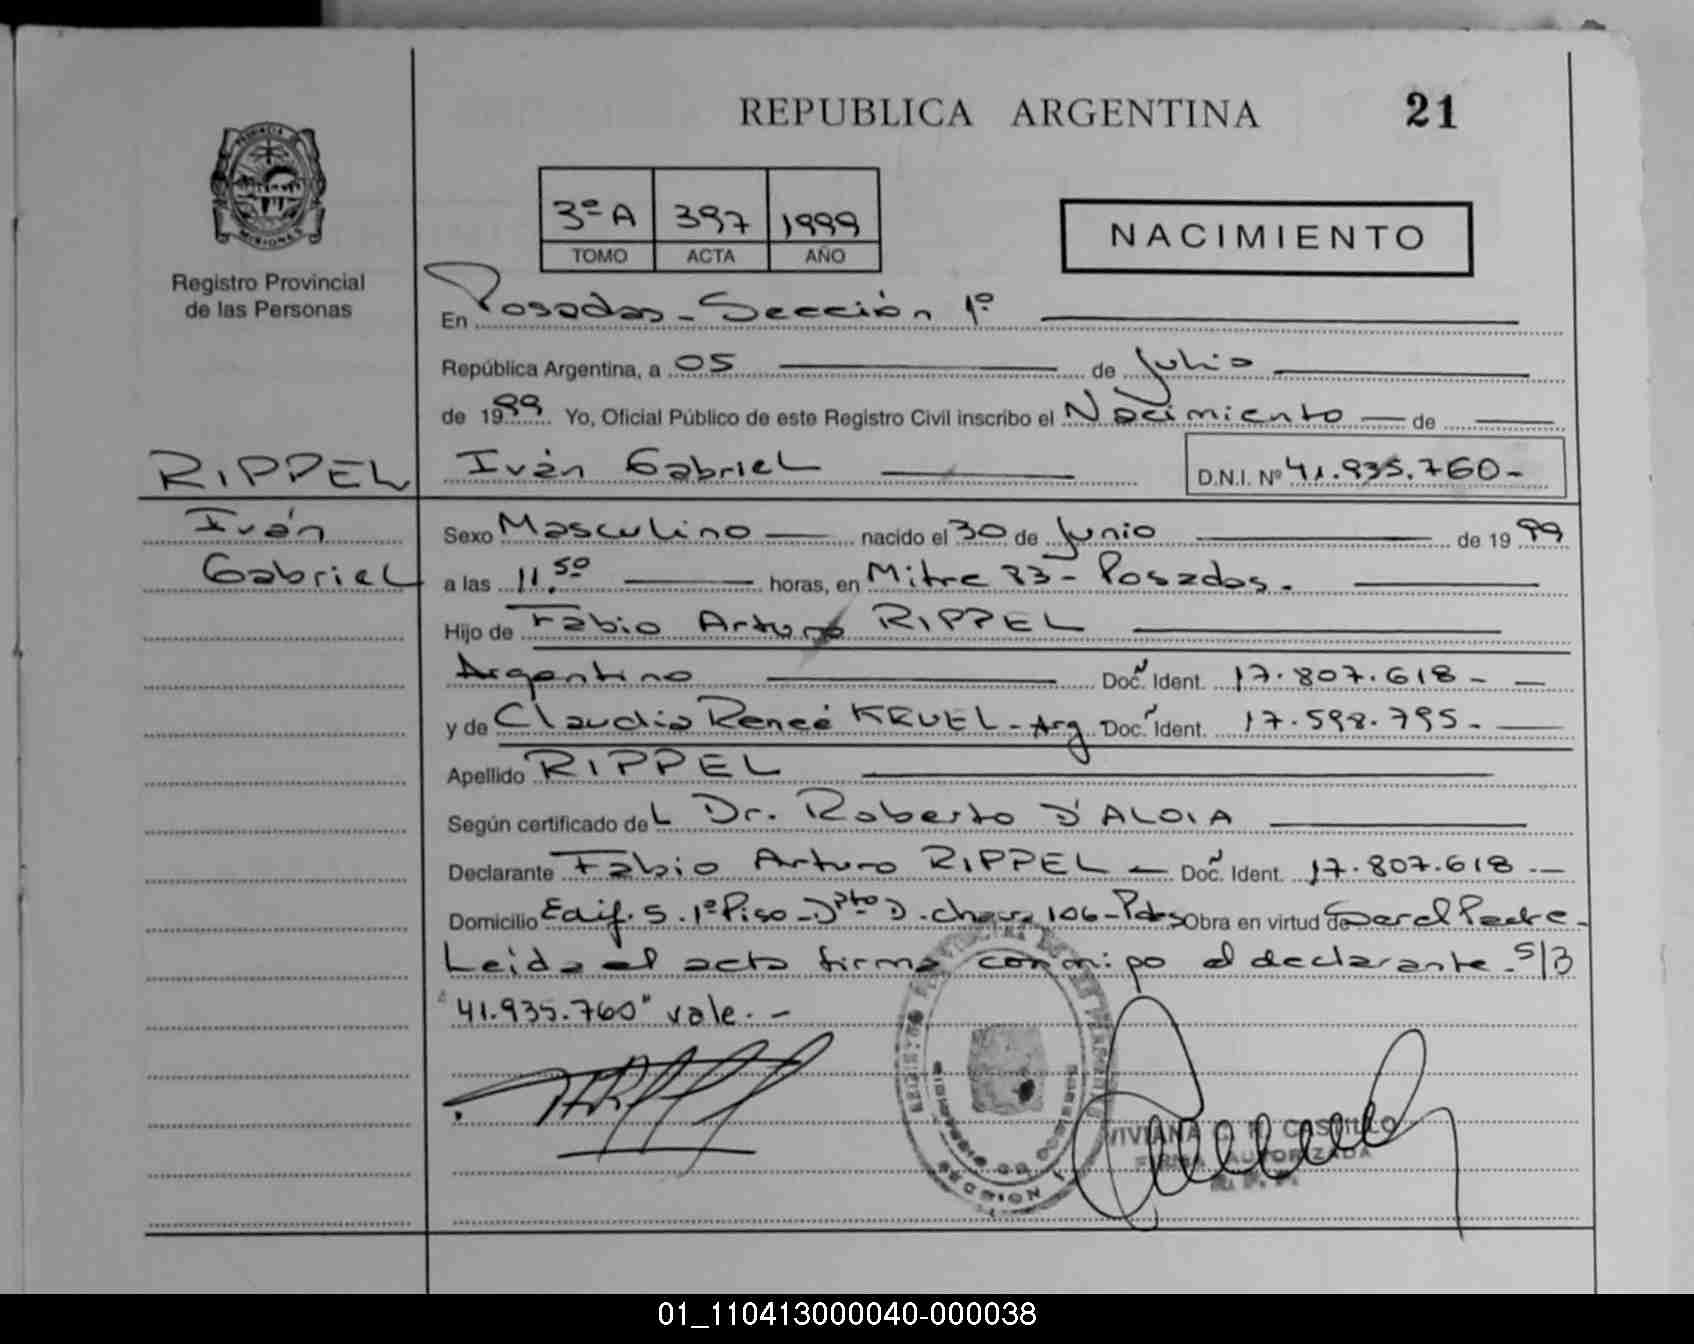 REPUBLICA ARGENTINA 21
PROVINCIA
MISIONES
Registro Provincial
de las Personas
3º A 397 1999
TOMO ACTA AÑO
NACIMIENTO
En Posadas - Sección 1º
República Argentina, a 05 de Julio
de 1999 Yo, Oficial Público de este Registro Civil inscribo el Nacimiento de
RIPPEL Iván Gabriel D.N.I. Nº 41.935.760-
Iván
Gabriel
Sexo Masculino nacido el 30 de Junio de 1999
a las 11.50 horas, en Mitre 83 - Posadas.
Hijo de Fabio Arturo RIPPEL
Argentino Doc. Ident. 17.807.618 -
y de Claudia Reneé KRUEL - Arg Doc. Ident. 17.598.795 -
Apellido RIPPEL
Según certificado del Dr. Roberto D'ALOIA
Declarante Fabio Arturo RIPPEL - Doc. Ident. 17.807.618 -
Domicilio Edif. 5. 1º Piso - Dpto D. 106 - Pdas Obra en virtud de Ser el Padre -
Leida el acta firma conmigo el declarante - S/B
"41.935.760" vale. -
SECCION 1
VIVIANA CASTILLO
FIRMA AUTORIZADA
01_110413000040-000038